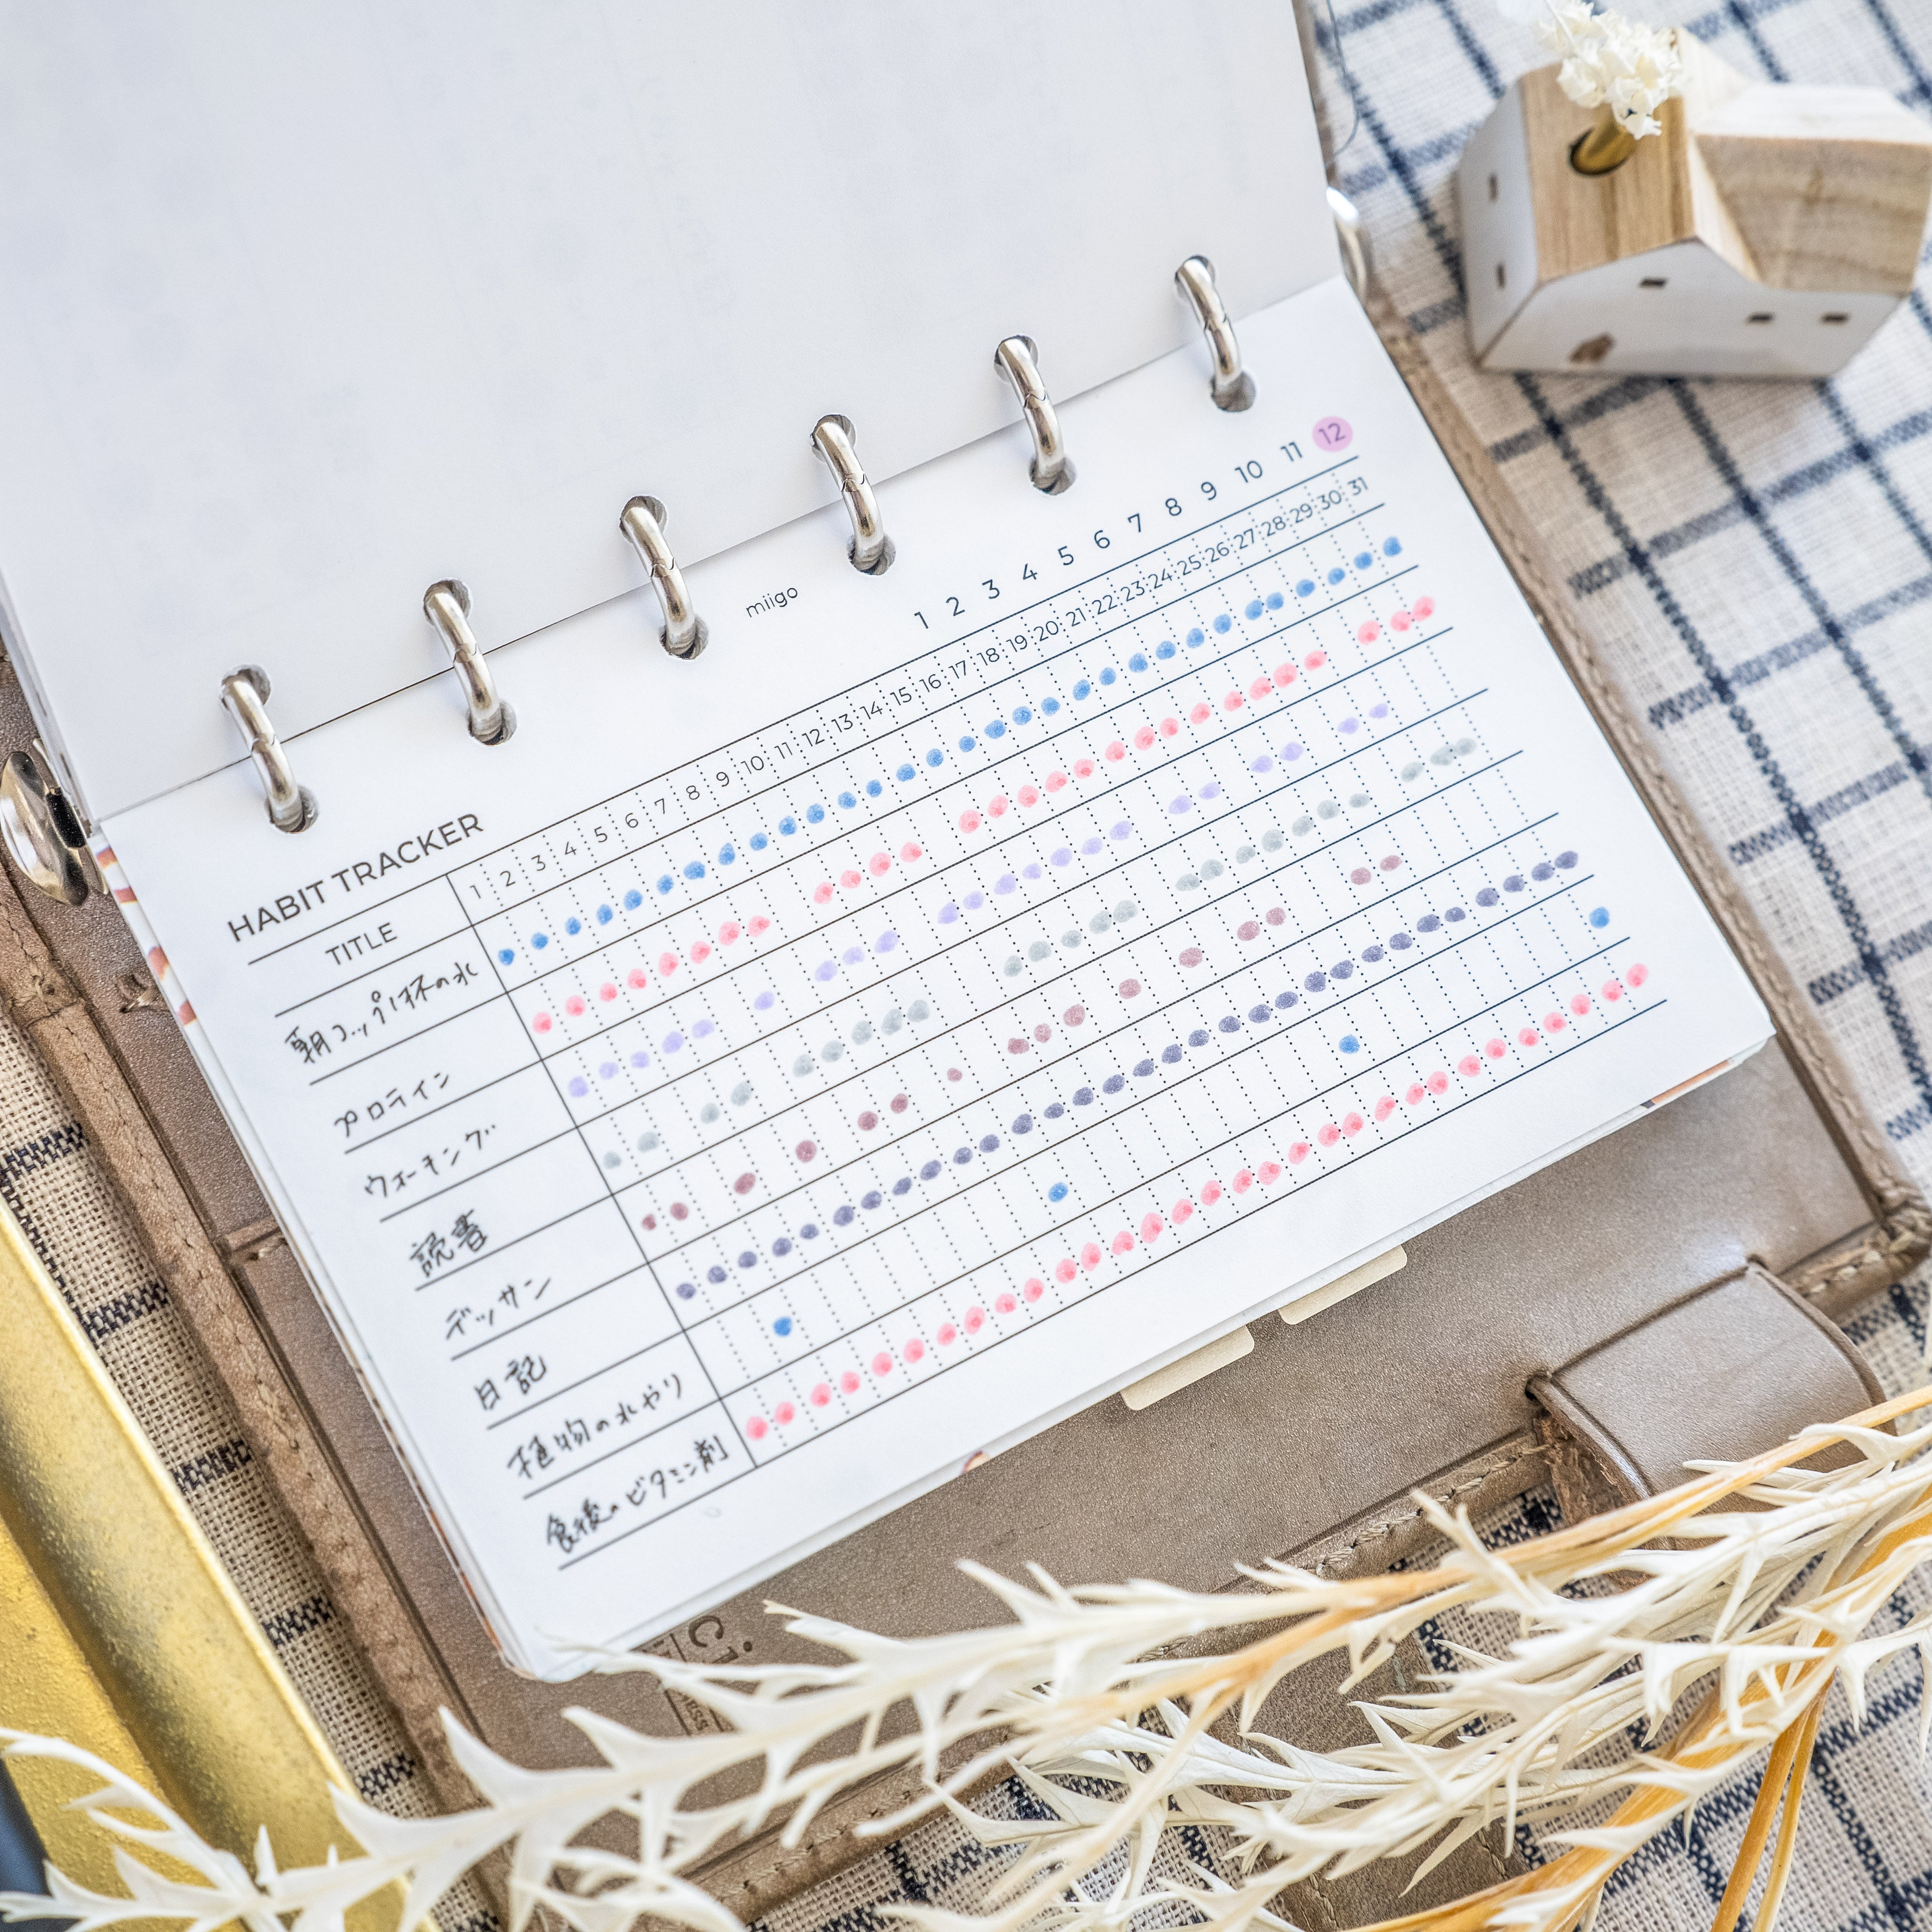 miigo
1 2 3 4 5 6 7 8 9 10 11 12
HABIT TRACKER
TITLE 1 2 3 4 5 6 7 8 9 10 11 12 13 14 15 16 17 18 19 20 21 22 23 24 25 26 27 28 29 30 31
朝コップ1杯の水
プロテイン
ウォーキング
読書
デッサン
日記
植物の水やり
食後のビタミン剤